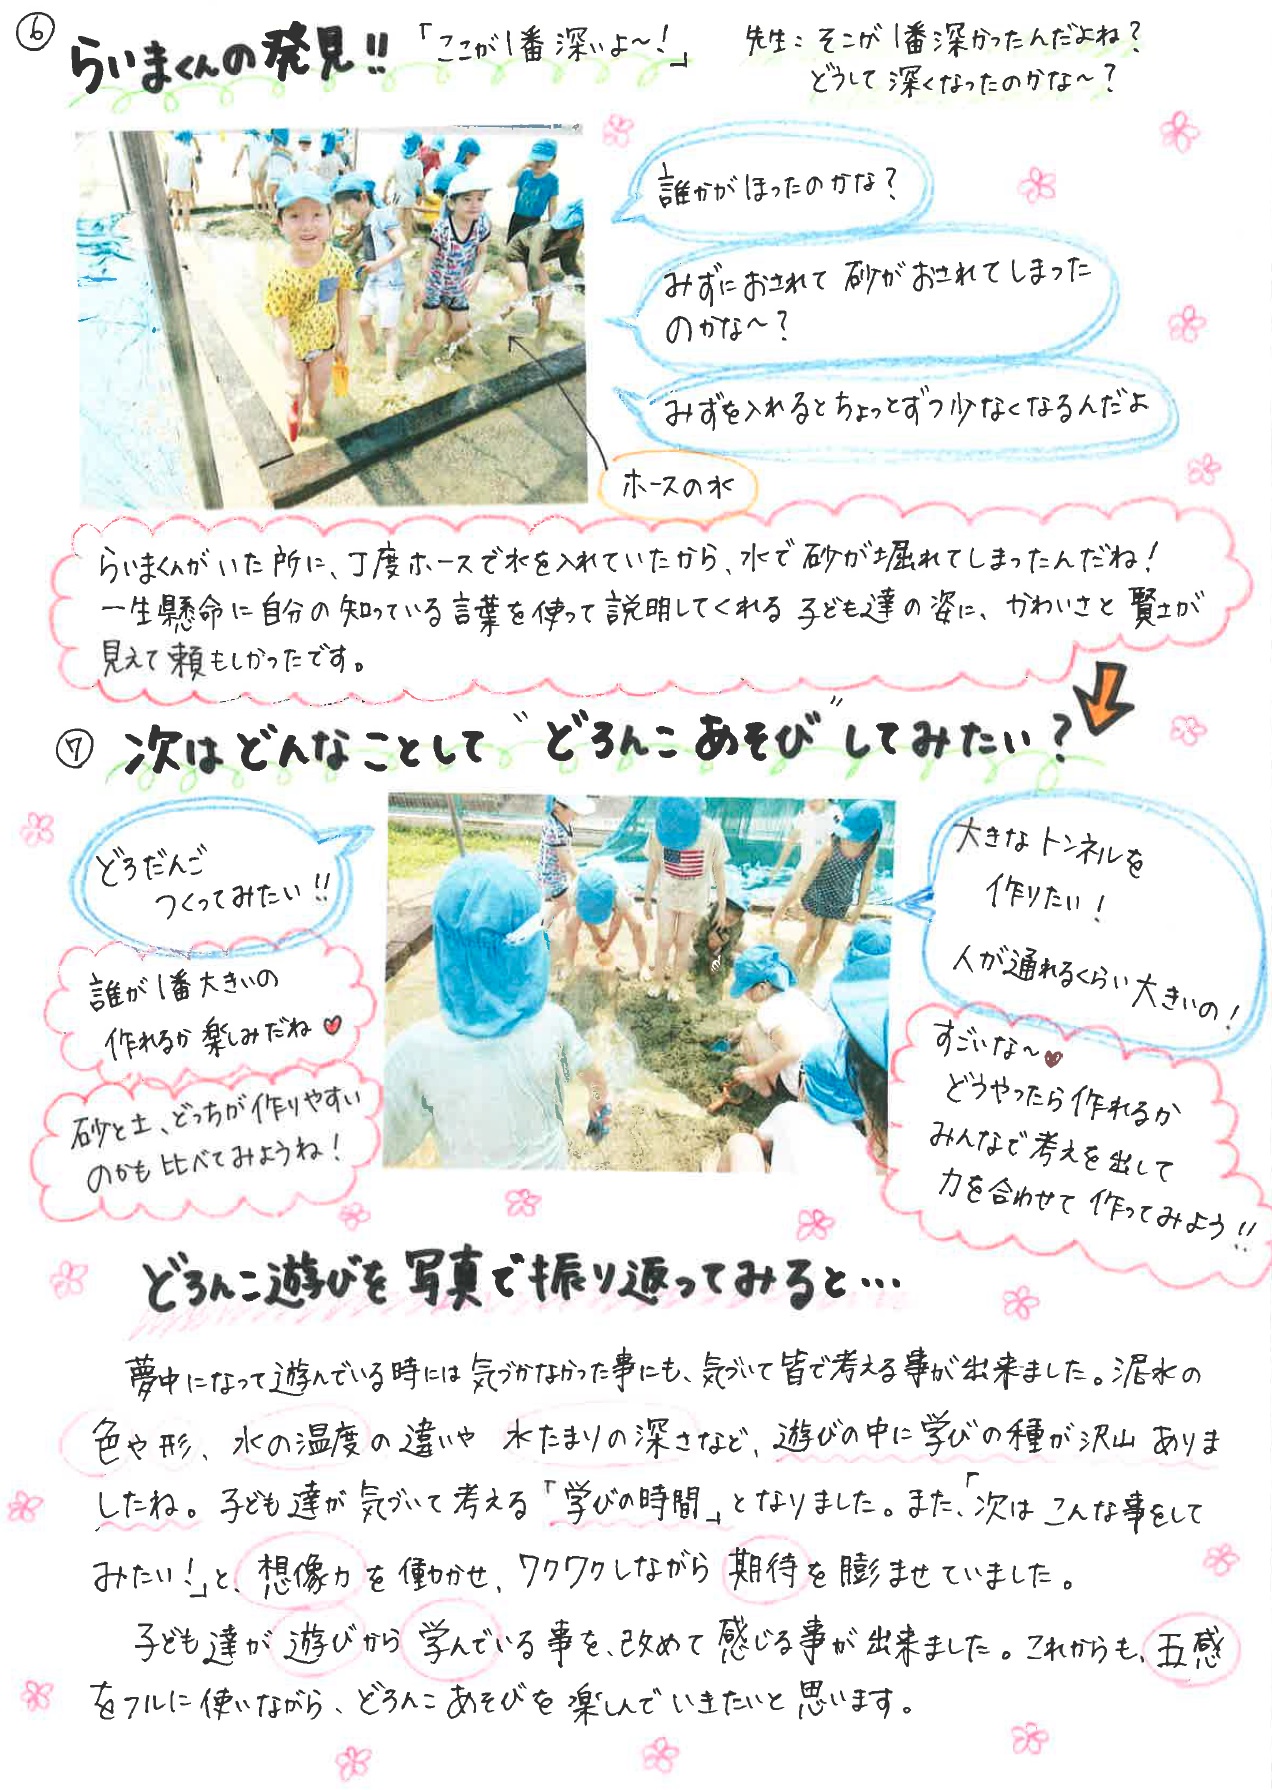 ⑥ らいまくんの発見!! 「ここが1番深いよ〜！」
先生：そこが1番深かったんだよね？
どうして深くなったのかな〜？
誰かがほったのかな？
みずにおされて砂がおされてしまった
のかな〜？
みずを入れるとちょっとずつ少なくなるんだよ
ホースの水
らいまくんがいた所に、丁度ホースで水を入れていたから、水で砂が堀れてしまったんだね！
一生懸命に自分の知っている言葉を使って説明してくれる子ども達の姿に、かわいさと賢さが
見えて頼もしかったです。
⑦ 次はどんなことして“どろんこあそび”してみたい？
どろだんご
つくってみたい!!
誰が1番大きいの
作れるか楽しみだね♥
砂と土、どっちが作りやすい
のかも比べてみようね！
大きなトンネルを
作りたい！
人が通れるくらい大きいの！
すごいな〜♥
どうやったら作れるか
みんなで考えを出して
力を合わせて作ってみよう!!
どろんこ遊びを写真で振り返ってみると…
夢中になって遊んでいる時には気づかなかった事にも、気づいて皆で考える事が出来ました。泥水の
色や形、水の温度の違いや水たまりの深さなど、遊びの中に学びの種が沢山ありま
したね。子ども達が気づいて考える「学びの時間」となりました。また、「次はこんな事をして
みたい！」と、想像力を働かせ、ワクワクしながら期待を膨ませていました。
子ども達が遊びから学んでいる事を、改めて感じる事が出来ました。これからも、五感
をフルに使いながら、どろんこあそびを楽しんでいきたいと思います。